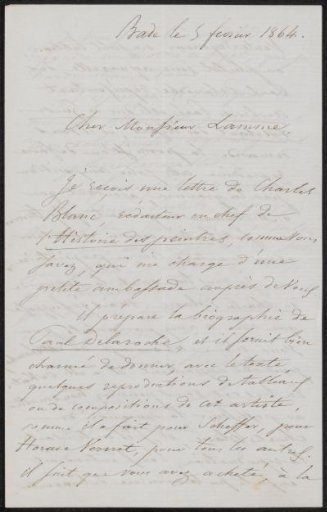 Bade le 5 fevrier 1864.
Cher Monsieur Lamme
Je reçois une lettre de Charles
Blanc rédacteur en chef de
l'Histoire des peintres, comme vous
savez, qui me charge d'une
petite ambassade auprès de vous
Il prépare la biographie de
Paul Delaroche, et il serait bien
charmé de donner, avec le texte,
quelques reproductions de tableaux
ou de compositions de cet artiste,
comme il a fait pour Scheffer, pour
Horace Vernet, pour tous les autres.
Il sait que vous avez acheté, à la